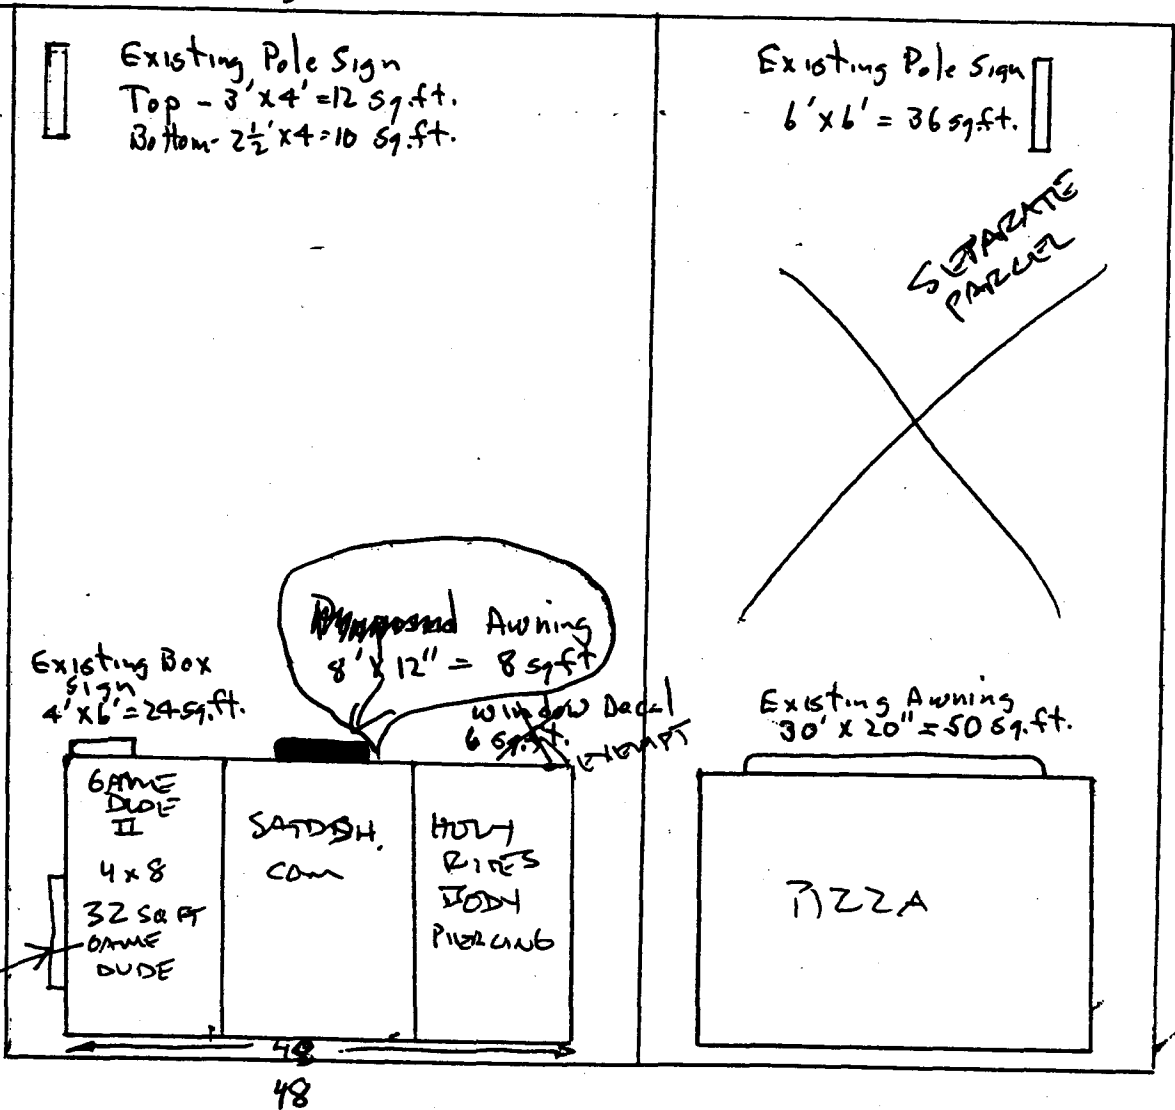 Existing Pole Sign
Top - 3' x 4' = 12 sq.ft.
Bottom - 2½' x 4 = 10 sq.ft.
Existing Pole Sign
6' x 6' = 36 sq.ft.
SEPARATE
PARCEL
Awning
8' x 12" = 8 sq ft
Existing Box
sign
4' x 6' = 24 sq.ft.
Window Decal
6 sq.ft.
EXEMPT
Existing Awning
30' x 20" = 50 sq.ft.
GAME
DUDE
II
4 x 8
32 SQ FT
GAME
DUDE
SATDISH.
COM
HOLY
RITES
BODY
PIERCING
PIZZA
48
48